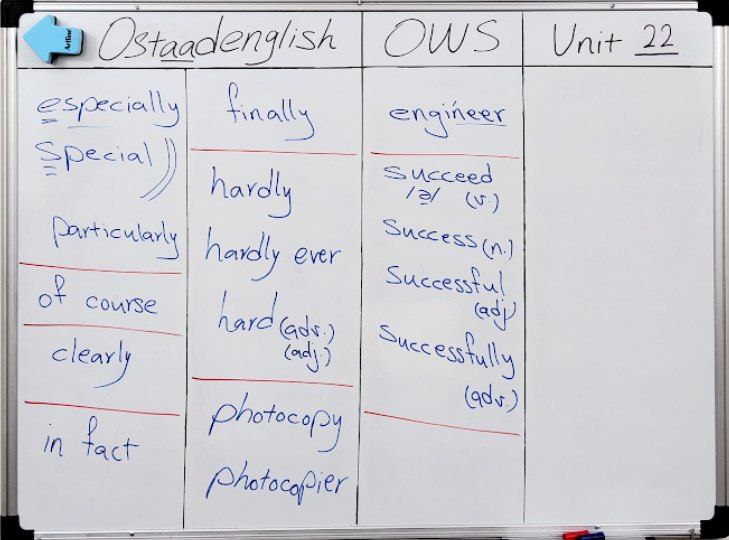 Artline
Ostaadenglish
OWS
Unit 22
especially
special
particularly
of course
clearly
in fact
finally
hardly
hardly ever
hard (adv.)
(adj.)
photocopy
photocopier
engineer
succeed
/ə/ (v.)
success (n.)
successful
(adj)
successfully
(adv.)